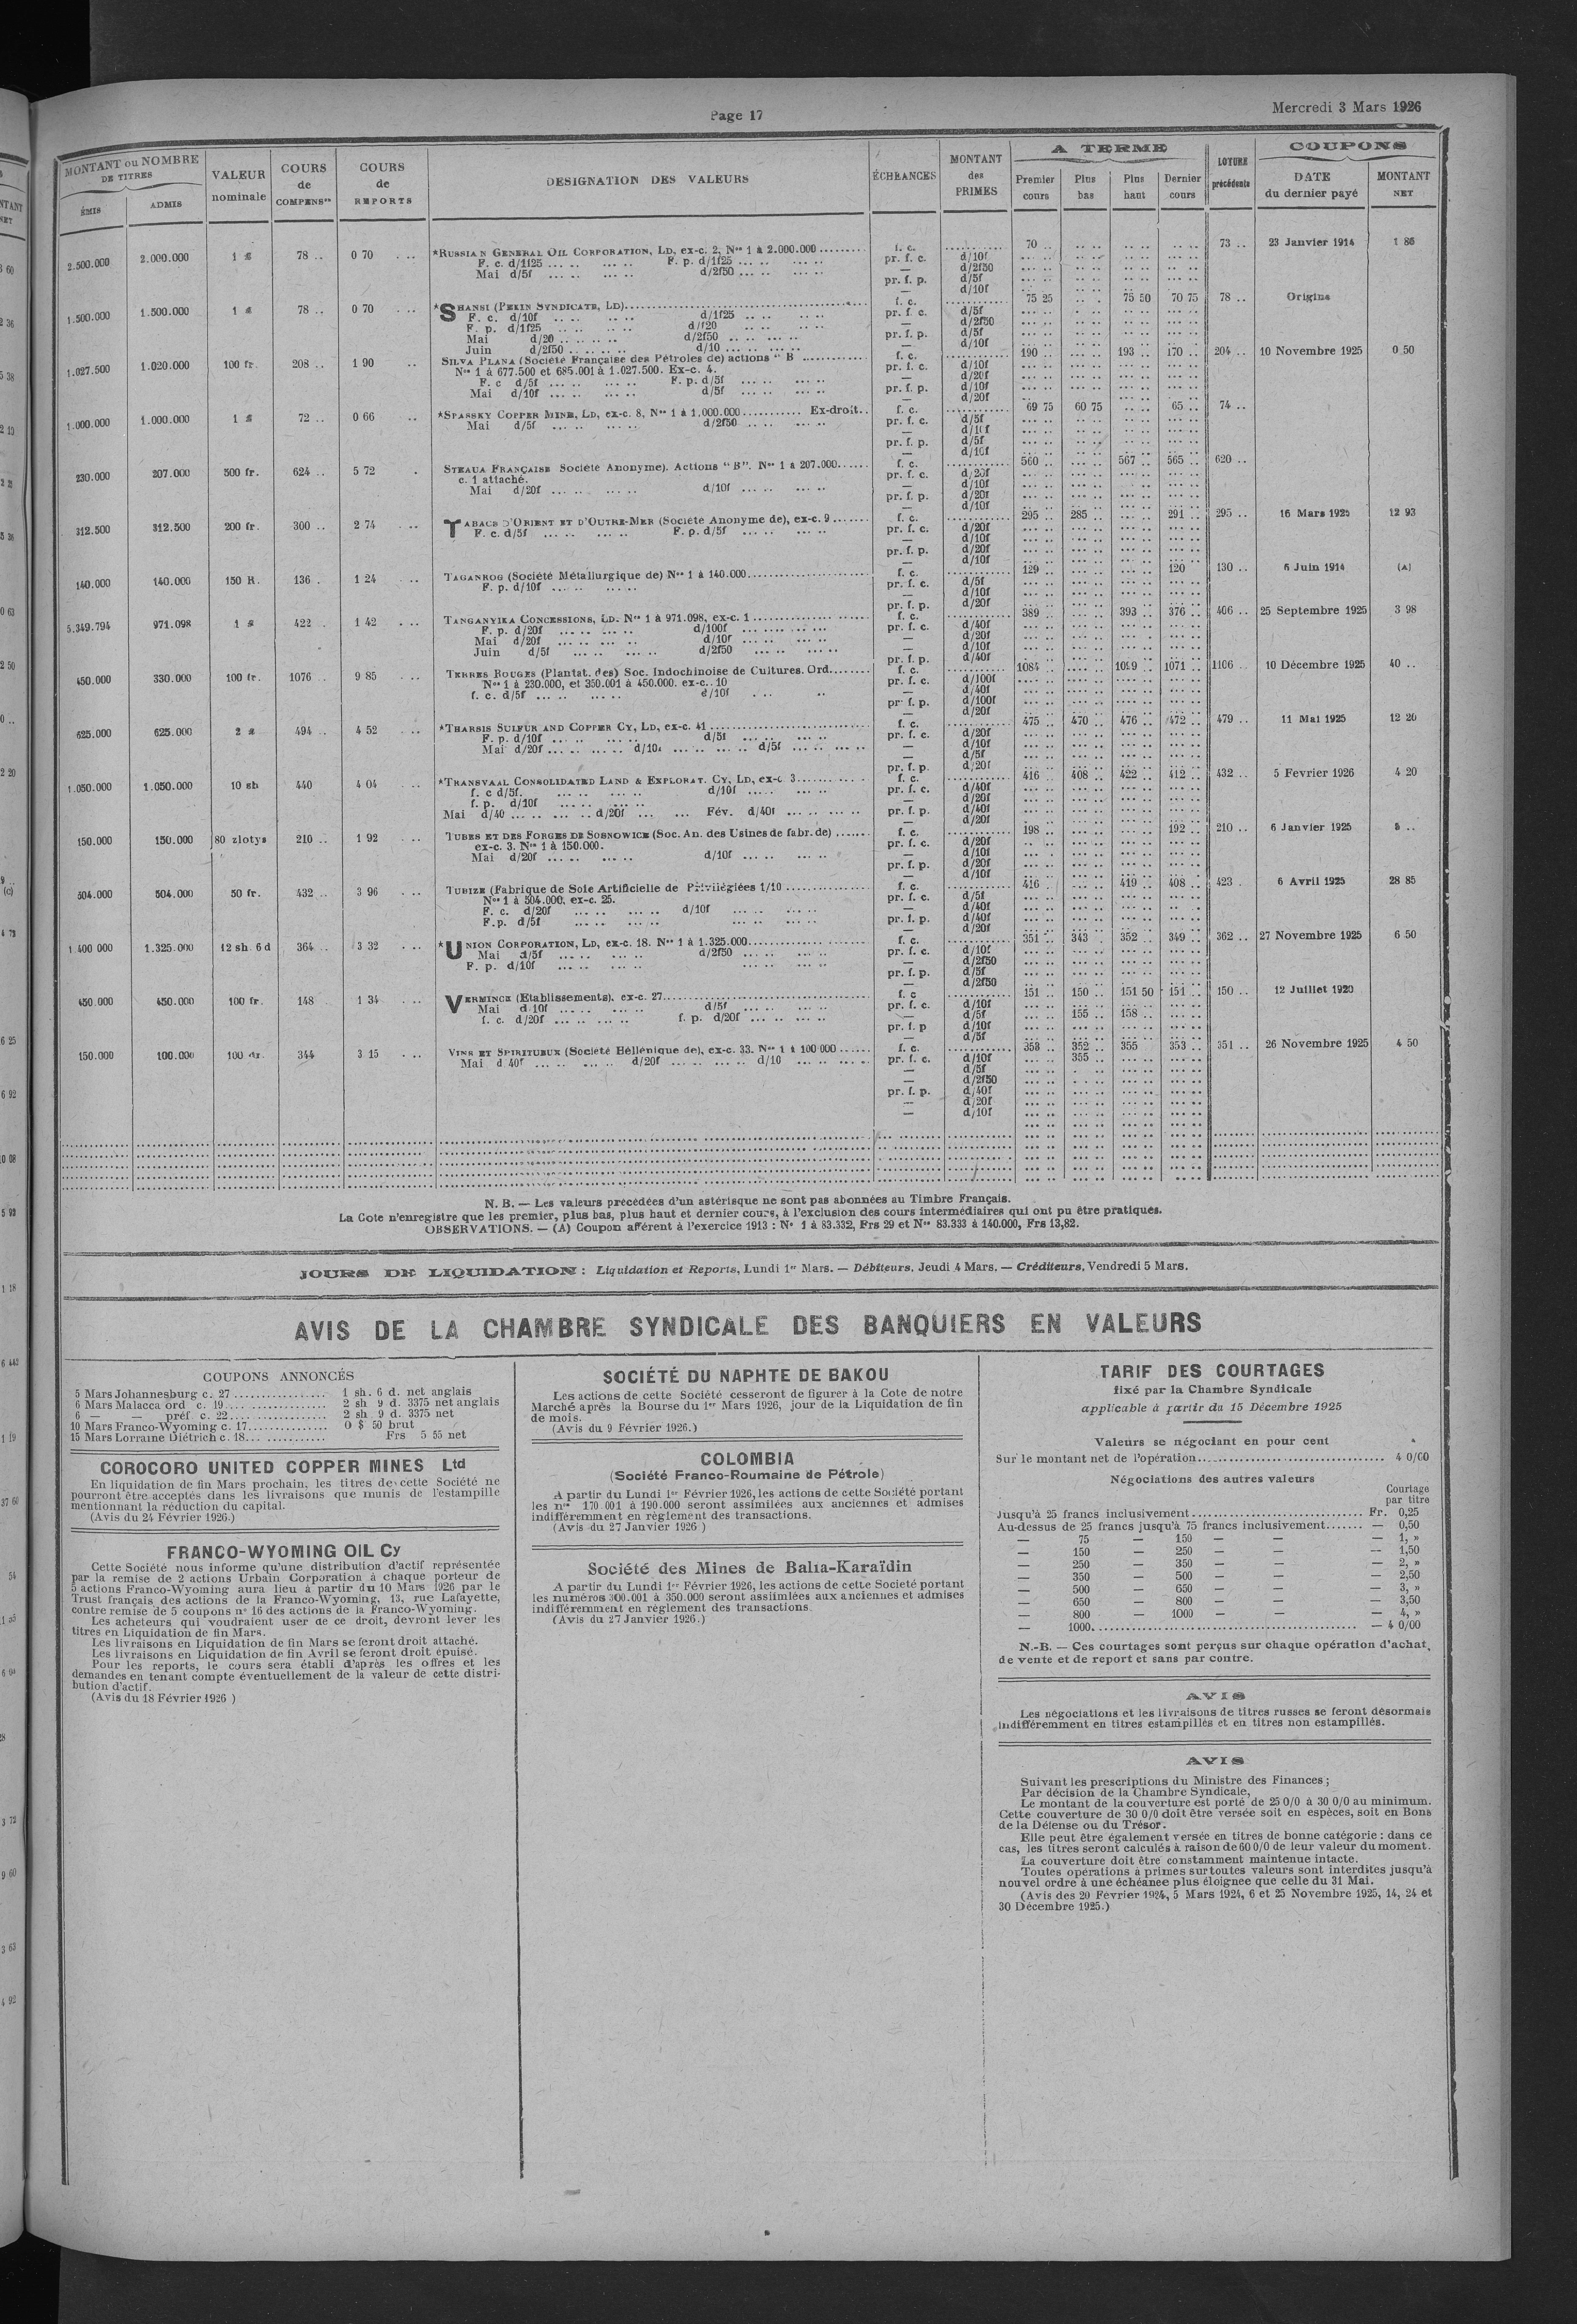 Page 17
Mercredi 3 Mars 1926
MONTANT ou NOMBRE DE TITRES
ÉMIS
ADMIS
VALEUR nominale
COURS de COMPENSon
COURS de REPORTS
DESIGNATION DES VALEURS
ÉCHÉANCES
MONTANT des PRIMES
A TERME
Premier cours
Plus bas
Plus haut
Dernier cours
CLOTURE précédente
COUPONS
DATE du dernier payé
MONTANT NET
2.500.000 2.000.000 1 £ 78 .. 0 70 *RUSSIAN GENERAL OIL CORPORATION, LD, ex-c. 2, Nos 1 à 2.000.000 f. c. 70 .. 73 .. 23 Janvier 1914 1 86
F. c. d/1f25 F. p. d/1f25 pr. f. c. d/10f
Mai d/5f d/2f50 — d/2f50
pr. f. p. d/5f
— d/10f
1.500.000 1.500.000 1 £ 78 .. 0 70 *SHANSI (PEKIN SYNDICATE, LD) f. c. 75 25 75 50 70 75 78 .. Origine
F. c. d/10f d/1f25 pr. f. c. d/5f
F. p. d/1f25 d/f20 — d/2f50
Mai d/20 d/2f50 pr. f. p. d/5f
Juin d/2f50 d/10 — d/10f
1.027.500 1.020.000 100 fr. 208 .. 1 90 SILVA PLANA (Société Française des Pétroles de) actions "B f. c. 190 .. 193 .. 170 .. 204 .. 10 Novembre 1925 0 50
Nos 1 à 677.500 et 685.001 à 1.027.500. Ex-c. 4. pr. f. c. d/10f
F. c d/5f F. p. d/5f — d/20f
Mai d/10f d/5f pr. f. p. d/10f
— d/20f
1.000.000 1.000.000 1 £ 72 .. 0 66 *SPASSKY COPPER MINE, LD, ex-c. 8, Nos 1 à 1.000.000 Ex-droit.. f. c. 69 75 60 75 65 .. 74 ..
Mai d/5f d/2f50 pr. f. c. d/5f
— d/10f
pr. f. p. d/5f
— d/10f
230.000 207.000 500 fr. 624 .. 5 72 STEAUA FRANÇAISE Société Anonyme). Actions "B". Nos 1 à 207.000 f. c. 560 .. 567 .. 565 .. 620 ..
c. 1 attaché. pr. f. c. d/20f
Mai d/20f d/10f — d/10f
pr. f. p. d/20f
— d/10f
312.500 312.500 200 fr. 300 .. 2 74 TABACS D'ORIENT ET D'OUTRE-MER (Société Anonyme de), ex-c. 9 f. c. 295 .. 285 .. 291 .. 295 .. 16 Mars 1925 12 93
F. c. d/5f F. p. d/5f pr. f. c. d/20f
— d/10f
pr. f. p. d/20f
— d/10f
140.000 140.000 150 R. 136 . 1 24 TAGANROG (Société Métallurgique de) Nos 1 à 140.000 f. c. 129 .. 120 130 .. 6 Juin 1914 (A)
F. p. d/10f pr. f. c. d/5f
— d/10f
pr. f. p. d/20f
5.349.794 971.098 1 £ 422 .. 1 42 TANGANYIKA CONCESSIONS, LD. Nos 1 à 971.098, ex-c. 1 f. c. 389 .. 393 .. 376 .. 406 .. 25 Septembre 1925 3 98
F. p. d/20f d/100f pr. f. c. d/40f
Mai d/20f d/10f — d/20f
Juin d/5f d/2f50 — d/10f
pr. f. p. d/40f
450.000 330.000 100 fr. 1076 .. 9 85 TERRES ROUGES (Plantat. des) Soc. Indochinoise de Cultures. Ord. f. c. 1084 .. 1099 .. 1071 .. 1106 .. 10 Décembre 1925 40 ..
Nos 1 à 230.000, et 350.001 à 450.000. ex-c. 10 pr. f. c. d/100f
f. c. d/5f d/10f — d/40f
pr. f. p. d/100f
— d/20f
625.000 625.000 2 £ 494 .. 4 52 *THARSIS SULFUR AND COPPER CY, LD, ex-c. 41 f. c. 475 .. 470 .. 476 .. 472 .. 479 .. 11 Mai 1925 12 20
F. p. d/10f d/5f pr. f. c. d/20f
Mai d/20f d/10f d/5f — d/10f
— d/5f
pr. f. p. d/20f
1.050.000 1.050.000 10 sh 440 4 04 *TRANSVAAL CONSOLIDATED LAND & EXPLORAT. CY, LD, ex-c 3 f. c. 416 .. 408 .. 422 .. 412 .. 432 .. 5 Fevrier 1926 4 20
f. c d/5f. d/10f pr. f. c. d/40f
f. p. d/10f — d/20f
Mai d/40 d/20f Fév. d/40f pr. f. p. d/40f
— d/20f
150.000 150.000 80 zlotys 210 .. 1 92 TUBES ET DES FORGES DE SOSNOWICE (Soc. An. des Usines de fabr. de) f. c. 198 .. 192 .. 210 .. 6 Janvier 1925
ex-c. 3. Nos 1 à 150.000. pr. f. c. d/20f
Mai d/20f d/10f — d/10f
pr. f. p. d/20f
— d/10f
504.000 504.000 50 fr. 432 .. 3 96 TUBIZE (Fabrique de Soie Artificielle de Privilégiées 1/10 f. c. 416 . 419 .. 408 .. 423 . 6 Avril 1925 28 85
Nos 1 à 504.000, ex-c. 25. pr. f. c. d/5f
F. c. d/20f d/10f — d/40f
F.p. d/5f pr. f. p. d/40f
— d/20f
1.400 000 1.325.000 12 sh. 6 d 364 .. 3 32 *UNION CORPORATION, LD, ex-c. 18. Nos 1 à 1.325.000 f. c. 351 .. 343 . 352 .. 349 .. 362 .. 27 Novembre 1925 6 50
Mai d/5f d/2f50 pr. f. c. d/10f
F. p. d/10f — d/2f50
pr. f. p. d/5f
— d/2f50
450.000 450.000 100 fr. 148 1 34 VERMINCK (Etablissements). ex-c. 27 f. c 151 .. 150 .. 151 50 151 .. 150 .. 12 Juillet 1920
Mai d 10f d/5f pr. f. c. d/10f
f. c. d/20f f. p. d/20f — d/5f 155 .. 158 ..
pr. f. p d/10f
— d/5f
150.000 100.000 100 dr. 344 3 15 VINS ET SPIRITUEUX (Société Hellénique de), ex-c. 33. Nos 1 à 100 000 f. c. 358 .. 352 .. 355 353 .. 351 .. 26 Novembre 1925 4 50
Mai d 40f d/20f d/10 pr. f. c. d/10f 355 ..
— d/5f
— d/2f50
pr. f. p. d/40f
— d/20f
— d/10f
N. B. — Les valeurs précédées d'un astérisque ne sont pas abonnées au Timbre Français.
La Cote n'enregistre que les premier, plus bas, plus haut et dernier cours, à l'exclusion des cours intermédiaires qui ont pu être pratiqués.
OBSERVATIONS. — (A) Coupon afférent à l'exercice 1913 : No 1 à 83.332, Frs 29 et Nos 83.333 à 140.000, Frs 13,82.
JOURS DE LIQUIDATION : Liquidation et Reports, Lundi 1er Mars. — Débiteurs, Jeudi 4 Mars. — Créditeurs, Vendredi 5 Mars.
AVIS DE LA CHAMBRE SYNDICALE DES BANQUIERS EN VALEURS
COUPONS ANNONCÉS
5 Mars Johannesburg c. 27 ................ 1 sh. 6 d. net anglais
6 Mars Malacca ord c. 19 ................ 2 sh 9 d. 3375 net anglais
6 — — préf c. 22 ................ 2 sh 9 d. 3375 net
10 Mars Franco-Wyoming c. 17 ............... 0 $ 50 brut
15 Mars Lorraine Diétrich c. 18 ............... Frs 5 55 net
COROCORO UNITED COPPER MINES Ltd
En liquidation de fin Mars prochain, les titres de cette Société ne
pourront être acceptés dans les livraisons que munis de l'estampille
mentionnant la réduction du capital.
(Avis du 24 Février 1926.)
FRANCO-WYOMING OIL Cy
Cette Société nous informe qu'une distribution d'actif représentée
par la remise de 2 actions Urbain Corporation à chaque porteur de
5 actions Franco-Wyoming aura lieu à partir du 10 Mars 1926 par le
Trust français des actions de la Franco-Wyoming, 13, rue Lafayette,
contre remise de 5 coupons no 16 des actions de la Franco-Wyoming.
Les acheteurs qui voudraient user de ce droit, devront lever les
titres en Liquidation de fin Mars.
Les livraisons en Liquidation de fin Mars se feront droit attaché.
Les livraisons en Liquidation de fin Avril se feront droit épuisé.
Pour les reports, le cours sera établi d'après les offres et les
demandes en tenant compte éventuellement de la valeur de cette distri-
bution d'actif.
(Avis du 18 Février 1926 )
SOCIÉTÉ DU NAPHTE DE BAKOU
Les actions de cette Société cesseront de figurer à la Cote de notre
Marché après la Bourse du 1er Mars 1926, jour de la Liquidation de fin
de mois.
(Avis du 9 Février 1926.)
COLOMBIA
(Société Franco-Roumaine de Pétrole)
A partir du Lundi 1er Février 1926, les actions de cette Société portant
les nos 170 001 à 190.000 seront assimilées aux anciennes et admises
indifféremment en règlement des transactions.
(Avis du 27 Janvier 1926 )
Société des Mines de Balia-Karaïdin
A partir du Lundi 1er Février 1926, les actions de cette Société portant
les numéros 300.001 à 350.000 seront assimlées aux anciennes et admises
indifféremment en règlement des transactions.
(Avis du 27 Janvier 1926.)
TARIF DES COURTAGES
fixé par la Chambre Syndicale
applicable à partir du 15 Décembre 1925
Valeurs se négociant en pour cent
Sur le montant net de l'opération ................ 4 0/00
Négociations des autres valeurs
Courtage
par titre
Jusqu'à 25 francs inclusivement ................ Fr. 0,25
Au-dessus de 25 francs jusqu'à 75 francs inclusivement ....... — 0,50
— 75 — 150 — — — 1, »
— 150 — 250 — — — 1,50
— 250 — 350 — — — 2, »
— 350 — 500 — — — 2,50
— 500 — 650 — — — 3, »
— 650 — 800 — — — 3,50
— 800 — 1000 — — — 4, »
— 1000 ................ — 4 0/00
N.-B. — Ces courtages sont perçus sur chaque opération d'achat,
de vente et de report et sans par contre.
AVIS
Les négociations et les livraisons de titres russes se feront désormais
indifféremment en titres estampillés et en titres non estampillés.
AVIS
Suivant les prescriptions du Ministre des Finances ;
Par décision de la Chambre Syndicale,
Le montant de la couverture est porté de 25 0/0 à 30 0/0 au minimum.
Cette couverture de 30 0/0 doit être versée soit en espèces, soit en Bons
de la Défense ou du Trésor.
Elle peut être également versée en titres de bonne catégorie : dans ce
cas, les titres seront calculés à raison de 60 0/0 de leur valeur du moment.
La couverture doit être constamment maintenue intacte.
Toutes opérations à primes sur toutes valeurs sont interdites jusqu'à
nouvel ordre à une échéance plus éloignee que celle du 31 Mai.
(Avis des 20 Février 1924, 5 Mars 1924, 6 et 25 Novembre 1925, 14, 24 et
30 Décembre 1925.)